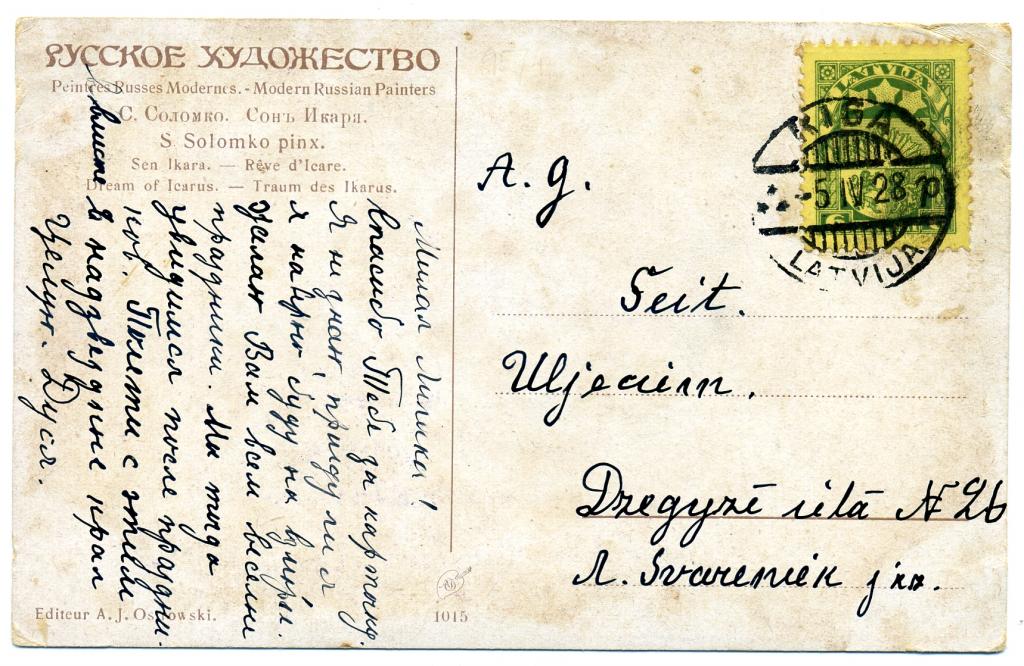 РУССКОЕ ХУДОЖЕСТВО
Peintres Russes Modernes. - Modern Russian Painters
С. Соломко. Сонъ Икара.
S. Solomko pinx.
Sen Ikara. — Rêve d'Icare.
Dream of Icarus. — Traum des Ikarus.
Милая Лилики!
Спасибо Тебе за карточку.
Я не знаю, приду ли я
я наверно буду на взморье.
Желаю Вам всем веселые
праздники. Мы тогда
увидимся после праздни-
ков. Полети с этим
вместе в надзвездные края
Целую. Дуся.
Editeur A. J. Ostrowski.
1015
LATVIJA
6
RIGA
-5 IV 28 P
LATVIJA
A. g.
Šeit.
Dzegužē ielā N 26